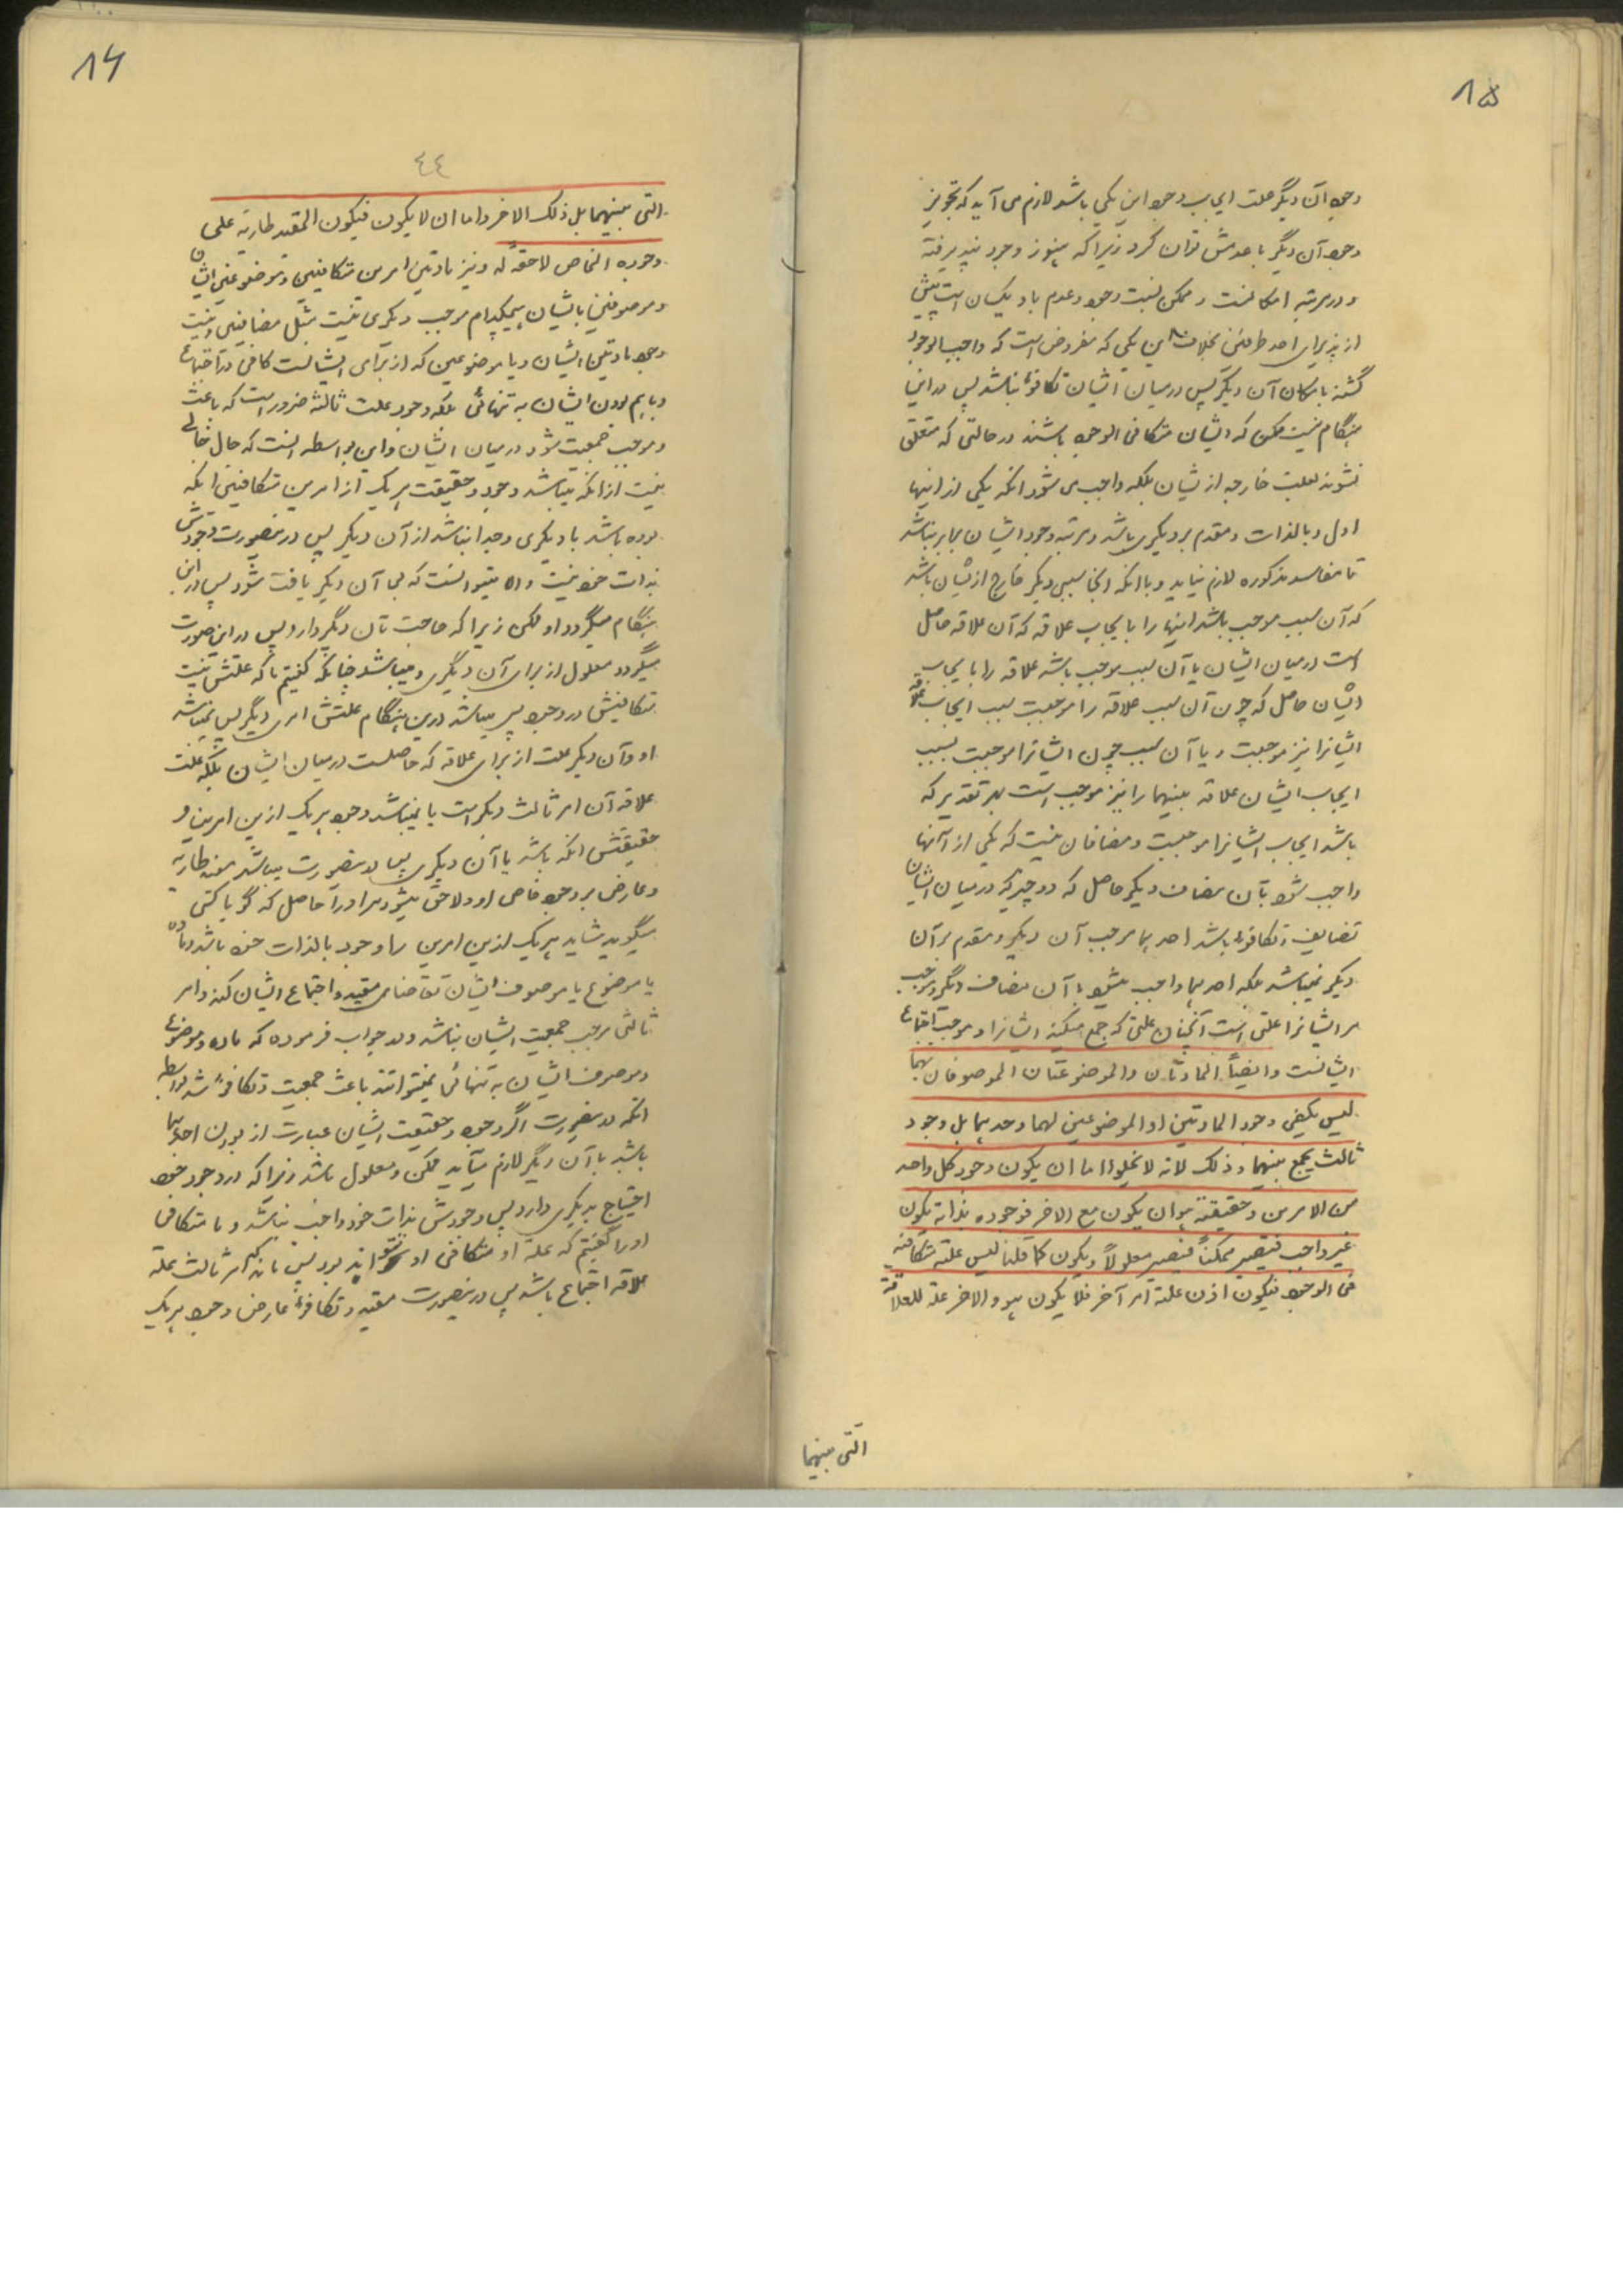 ۱۵
وجود آن دیگر علت ایجاب وجود این یکی باشد لازم می آید که تجویز
وجود آن دیگر با عدمش توان کرد زیرا که هنوز وجود نپذیرفته
و در مرتبه امکانست و ممکن نسبت وجود و عدم باو یکسان است پیش
از پذیرای احد طرفین بخلاف این یکی که مفروض است که واجب الوجود
گشته بامکان آن دیگر پس در میان ایشان تکافؤ نباشد پس در این
هنگام نیست ممکن که ایشان متکافی الوجود باشند در حالتی که متعلق
نشوند بعلت خارجه از یشان بلکه واجب می شود انکه یکی از اینها
اول و بالذات و مقدم بر دیگری باشد و مرتبه وجود ایشان برابر نباشد
تا مفاسد مذکوره لازم نیاید و با انکه انجا سببی دیگر خارج از یشان باشد
که آن سبب موجب باشد اینها را با یجاب علاقه که آن علاقه حاصل
است در میان ایشان یا آن سبب موجب باشد علاقه را با یجاب
ایشان حاصل که چون آن سبب علاقه را موجبت بسبب ایجاب علاقه
ایشانرا نیز موجبت و یا آن سبب چون ایشانرا موجبت بسبب
ایجاب ایشان علاقه بینهما را نیز موجب است بهر تقدیر که
باشد ایجاب ایشانرا موجبست و مضافان نیست که یکی از آنها
واجب شود بآن مضاف دیگر حاصل که دو چیز که در میان ایشان
تضایف و تکافؤ باشد احدهما موجب آن دیگر و مقدم بر آن
دیگر نمیباشد بلکه احدهما واجب میشود با آن مضاف دیگر و موجب
مر ایشانرا علتی است آنچنان علتی که جمع میکند ایشانرا و موجب اجتماع
ایشانست وایضاً المادتان والموضوعتان الموصوفان بهما
لیس یکفی وجود المادتین او الموضوعین لهما وحدهما بل وجود
ثالث یجمع بینهما وذلک لانه لا یخلوا اما ان یکون وجود کل واحد
من الامرین وحقیقته هو ان یکون مع الاخر فوجوده بذاته یکون
غیر واجب فتصیر ممکناً فتصیر معلولاً ویکون کما قلنا لیس علته متکافیه
فی الوجود فیکون اذن علته امر آخر فلا یکون هو والاخر علة للعلاقة
التی بینهما
۱۶
٤٤
التی بینهما بل ذلک الاخر واما ان لا یکون فیکون المقید طاریة علی
وجوده الخاص لاحقة له و نیز مادتین امرین متکافیین و موضوعین ایشان
و موصوفین بایشان هیچکدام موجب دیگری نیست مثل مضافین و نیست
وجود مادتین ایشان و یا موضوعین که از برای ایشانست کافی در اجتماع
و باهم بودن ایشان به تنهائی بلکه وجود علت ثالثه ضرور است که باعث
و موجب جمعیت شود در میان ایشان و این بواسطه انست که حال خالی
نیست از انکه میباشد وجود و حقیقت هر یک از امرین متکافیین انکه
بوده باشد با دیگری و جدا نباشد از آن دیگر پس درینصورت وجودش
بذات خود نیست و اه میتوانست که بی آن دیگر یافت شود پس در این
هنگام میگردد او ممکن زیرا که حاجت بآن دیگر دارد و پس در این صورت
میگردد معلول از برای آن دیگری و میباشد چنانکه گفتیم با که علتش نیست
متکافیش در وجود پس میباشد درین هنگام علتش امری دیگر پس نمیباشد
او و آن دیگر علت از برای علاقه که حاصلست در میان ایشان بلکه علت
علاقه آن امر ثالث دیگر است یا نمیباشد وجود هر یک ازین امرین و
حقیقتش انکه باشد با آن دیگری پس درینصورت میباشد معیت طاریه
و عارض بر وجود خاص او و لاحق میشود مر او را حاصل که گویا کسی
میگوید شاید هر یک ازین امرین را وجود بالذات خود باشد و ماده
یا موضوع یا موصوف ایشان تقاضای معیه و اجتماع ایشان کند و امر
ثالثی موجب جمعیت ایشان نباشد ودر جواب فرموده که ماده و موضوع
و موصوف ایشان به تنهائی نمیتوانند باعث جمعیت و تکافؤ شد بواسطه
انکه درینصورت اگر وجود و حقیقت ایشان عبارت از بودن احدهما
باشد با آن دیگر لازم میآید ممکن و معلول باشد زیرا که در وجود خود
احتیاج بدیگری دارد پس وجودش بذات خود واجب نباشد و با متکافی
او را گفتیم که علة او متکافی او نتواند بود پس باید که امر ثالث علة
علاقه اجتماع باشد پس درینصورت معیه و تکافؤ عارض وجود هر یک